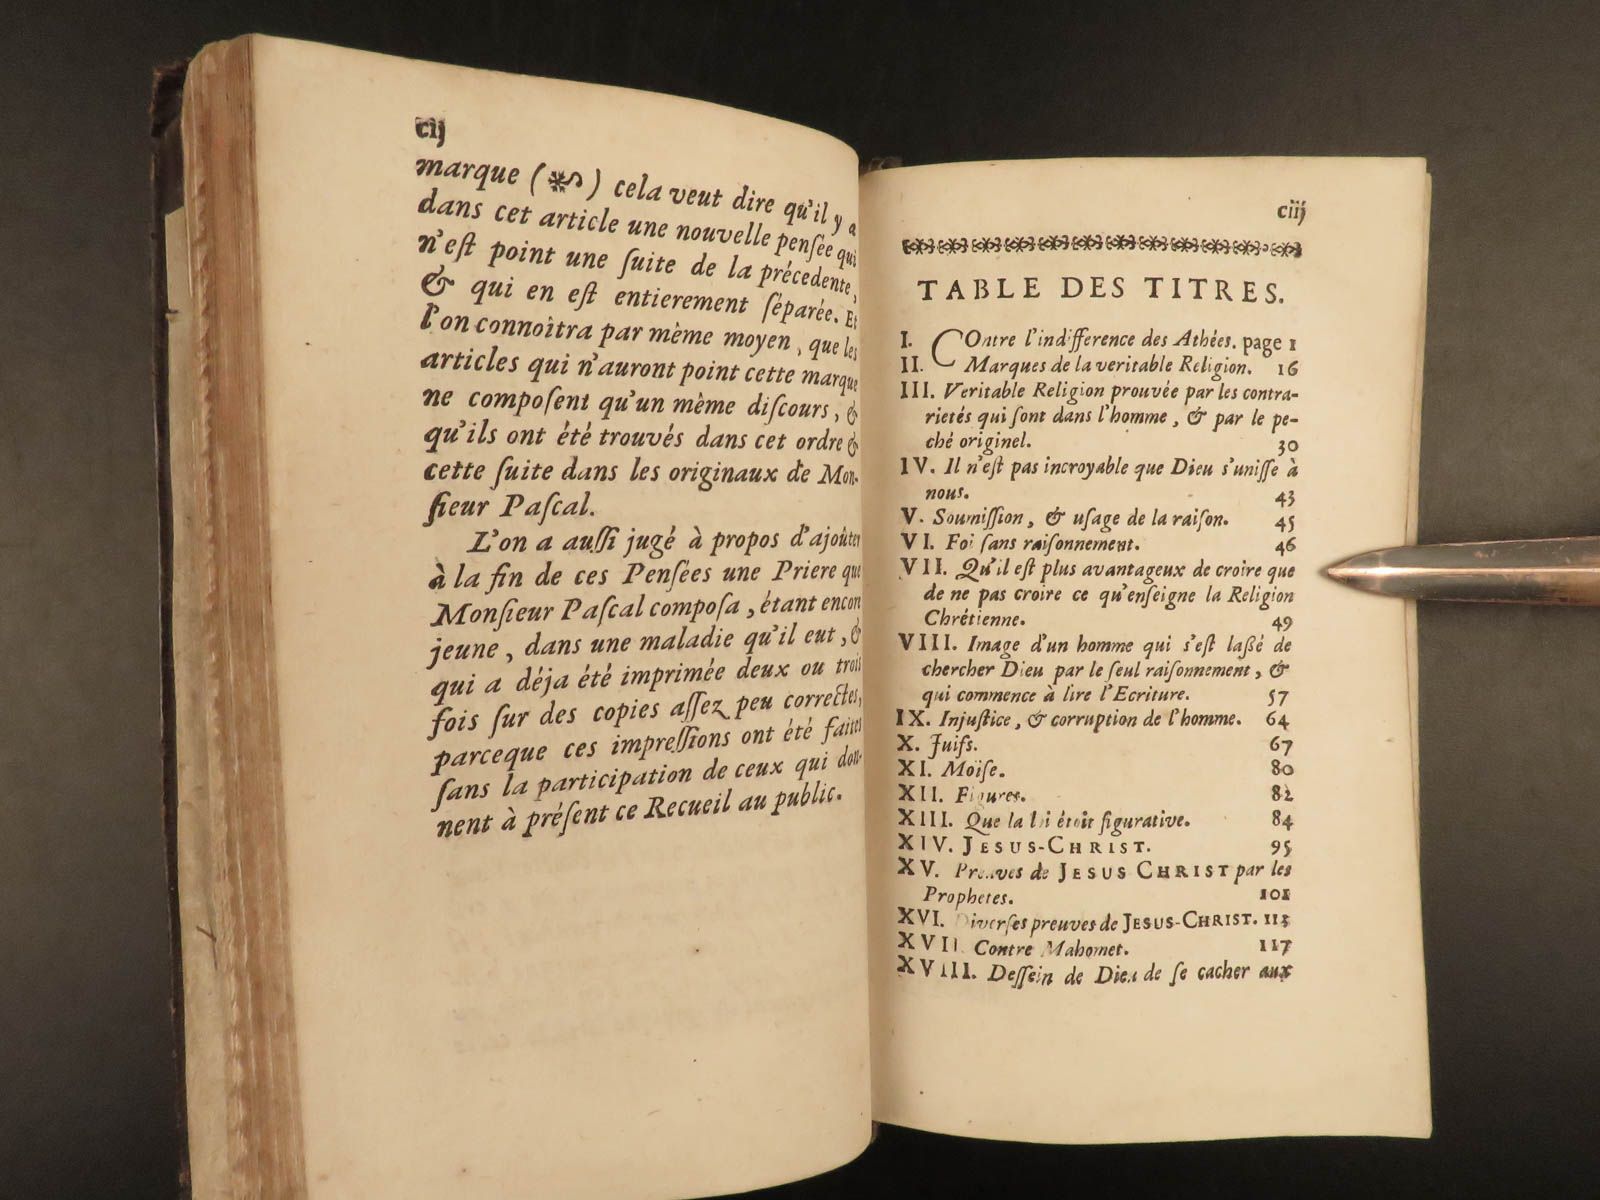 cij
marque (*) cela veut dire qu'il y a
dans cet article une nouvelle pensée qui
n'est point une suite de la précedente,
& qui en est entierement séparée. Et
l'on connoîtra par même moyen, que les
articles qui n'auront point cette marque
ne composent qu'un même discours, &
qu'ils ont été trouvés dans cet ordre &
cette suite dans les originaux de Mon-
sieur Pascal.
L'on a aussi jugé à propos d'ajoûter
à la fin de ces Pensées une Priere que
Monsieur Pascal composa, étant encor
jeune, dans une maladie qu'il eut, &
qui a déja été imprimée deux ou trois
fois sur des copies assez peu correctes,
parceque ces impressions ont été faites
sans la participation de ceux qui don-
nent à présent ce Recueil au public.
ciij
TABLE DES TITRES.
I. COntre l'indifference des Athées. page 1
II. Marques de la veritable Religion. 16
III. Veritable Religion prouvée par les contra-
rietés qui sont dans l'homme, & par le pe-
ché originel. 30
IV. Il n'est pas incroyable que Dieu s'unisse à
nous. 43
V. Soumission, & usage de la raison. 45
VI. Foi sans raisonnement. 46
VII. Qu'il est plus avantageux de croire que
de ne pas croire ce qu'enseigne la Religion
Chrétienne. 49
VIII. Image d'un homme qui s'est lassé de
chercher Dieu par le seul raisonnement, &
qui commence à lire l'Ecriture. 57
IX. Injustice, & corruption de l'homme. 64
X. Juifs. 67
XI. Moïse. 80
XII. Figures. 82
XIII. Que la loi étoit figurative. 84
XIV. JESUS-CHRIST. 95
XV. Preuves de JESUS CHRIST par les
Prophetes. 101
XVI. Diverses preuves de JESUS-CHRIST. 113
XVII. Contre Mahomet. 117
XVIII. Dessein de Dieu de se cacher aux